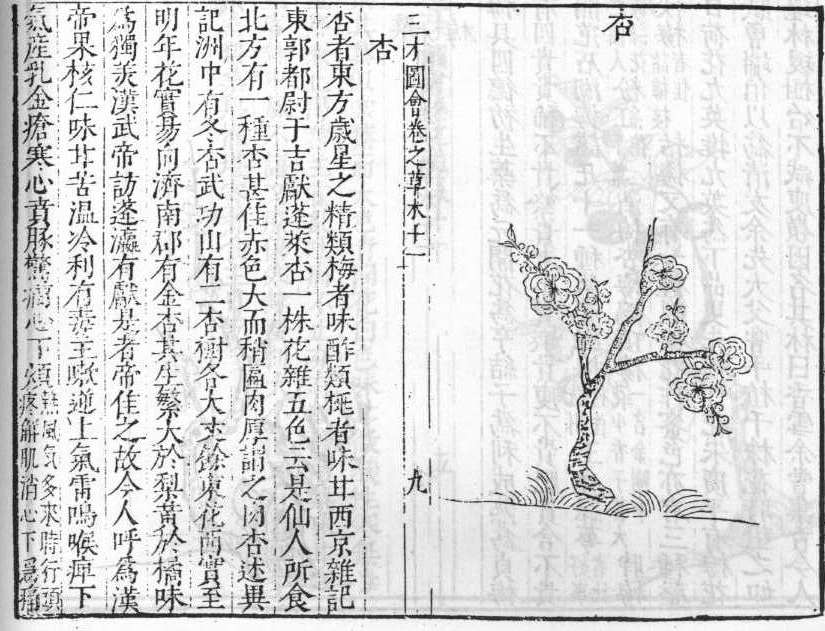 杏
三才圖會卷之草木十一
九
杏
杏者東方歲星之精類梅者味酢類桃者味甘西京雜記
東郭都尉于吉獻蓬萊杏一株花雜五色云是仙人所食
北方有一種杏甚佳赤色大而稍匾肉厚謂之肉杏述異
記洲中有冬杏武功山有二杏樹各大丈餘東花西實至
明年花實易向濟南郡有金杏其生繁大於梨黃於橘味
爲獨羙漢武帝訪蓬瀛有獻是者帝佳之故今人呼爲漢
帝果核仁味甘苦溫冷利有毒主咳逆上氣雷鳴喉痺下
氣產乳金瘡寒心賁豚驚癎心下煩熱風氣多來時行頭
疼解肌消心下爲痛